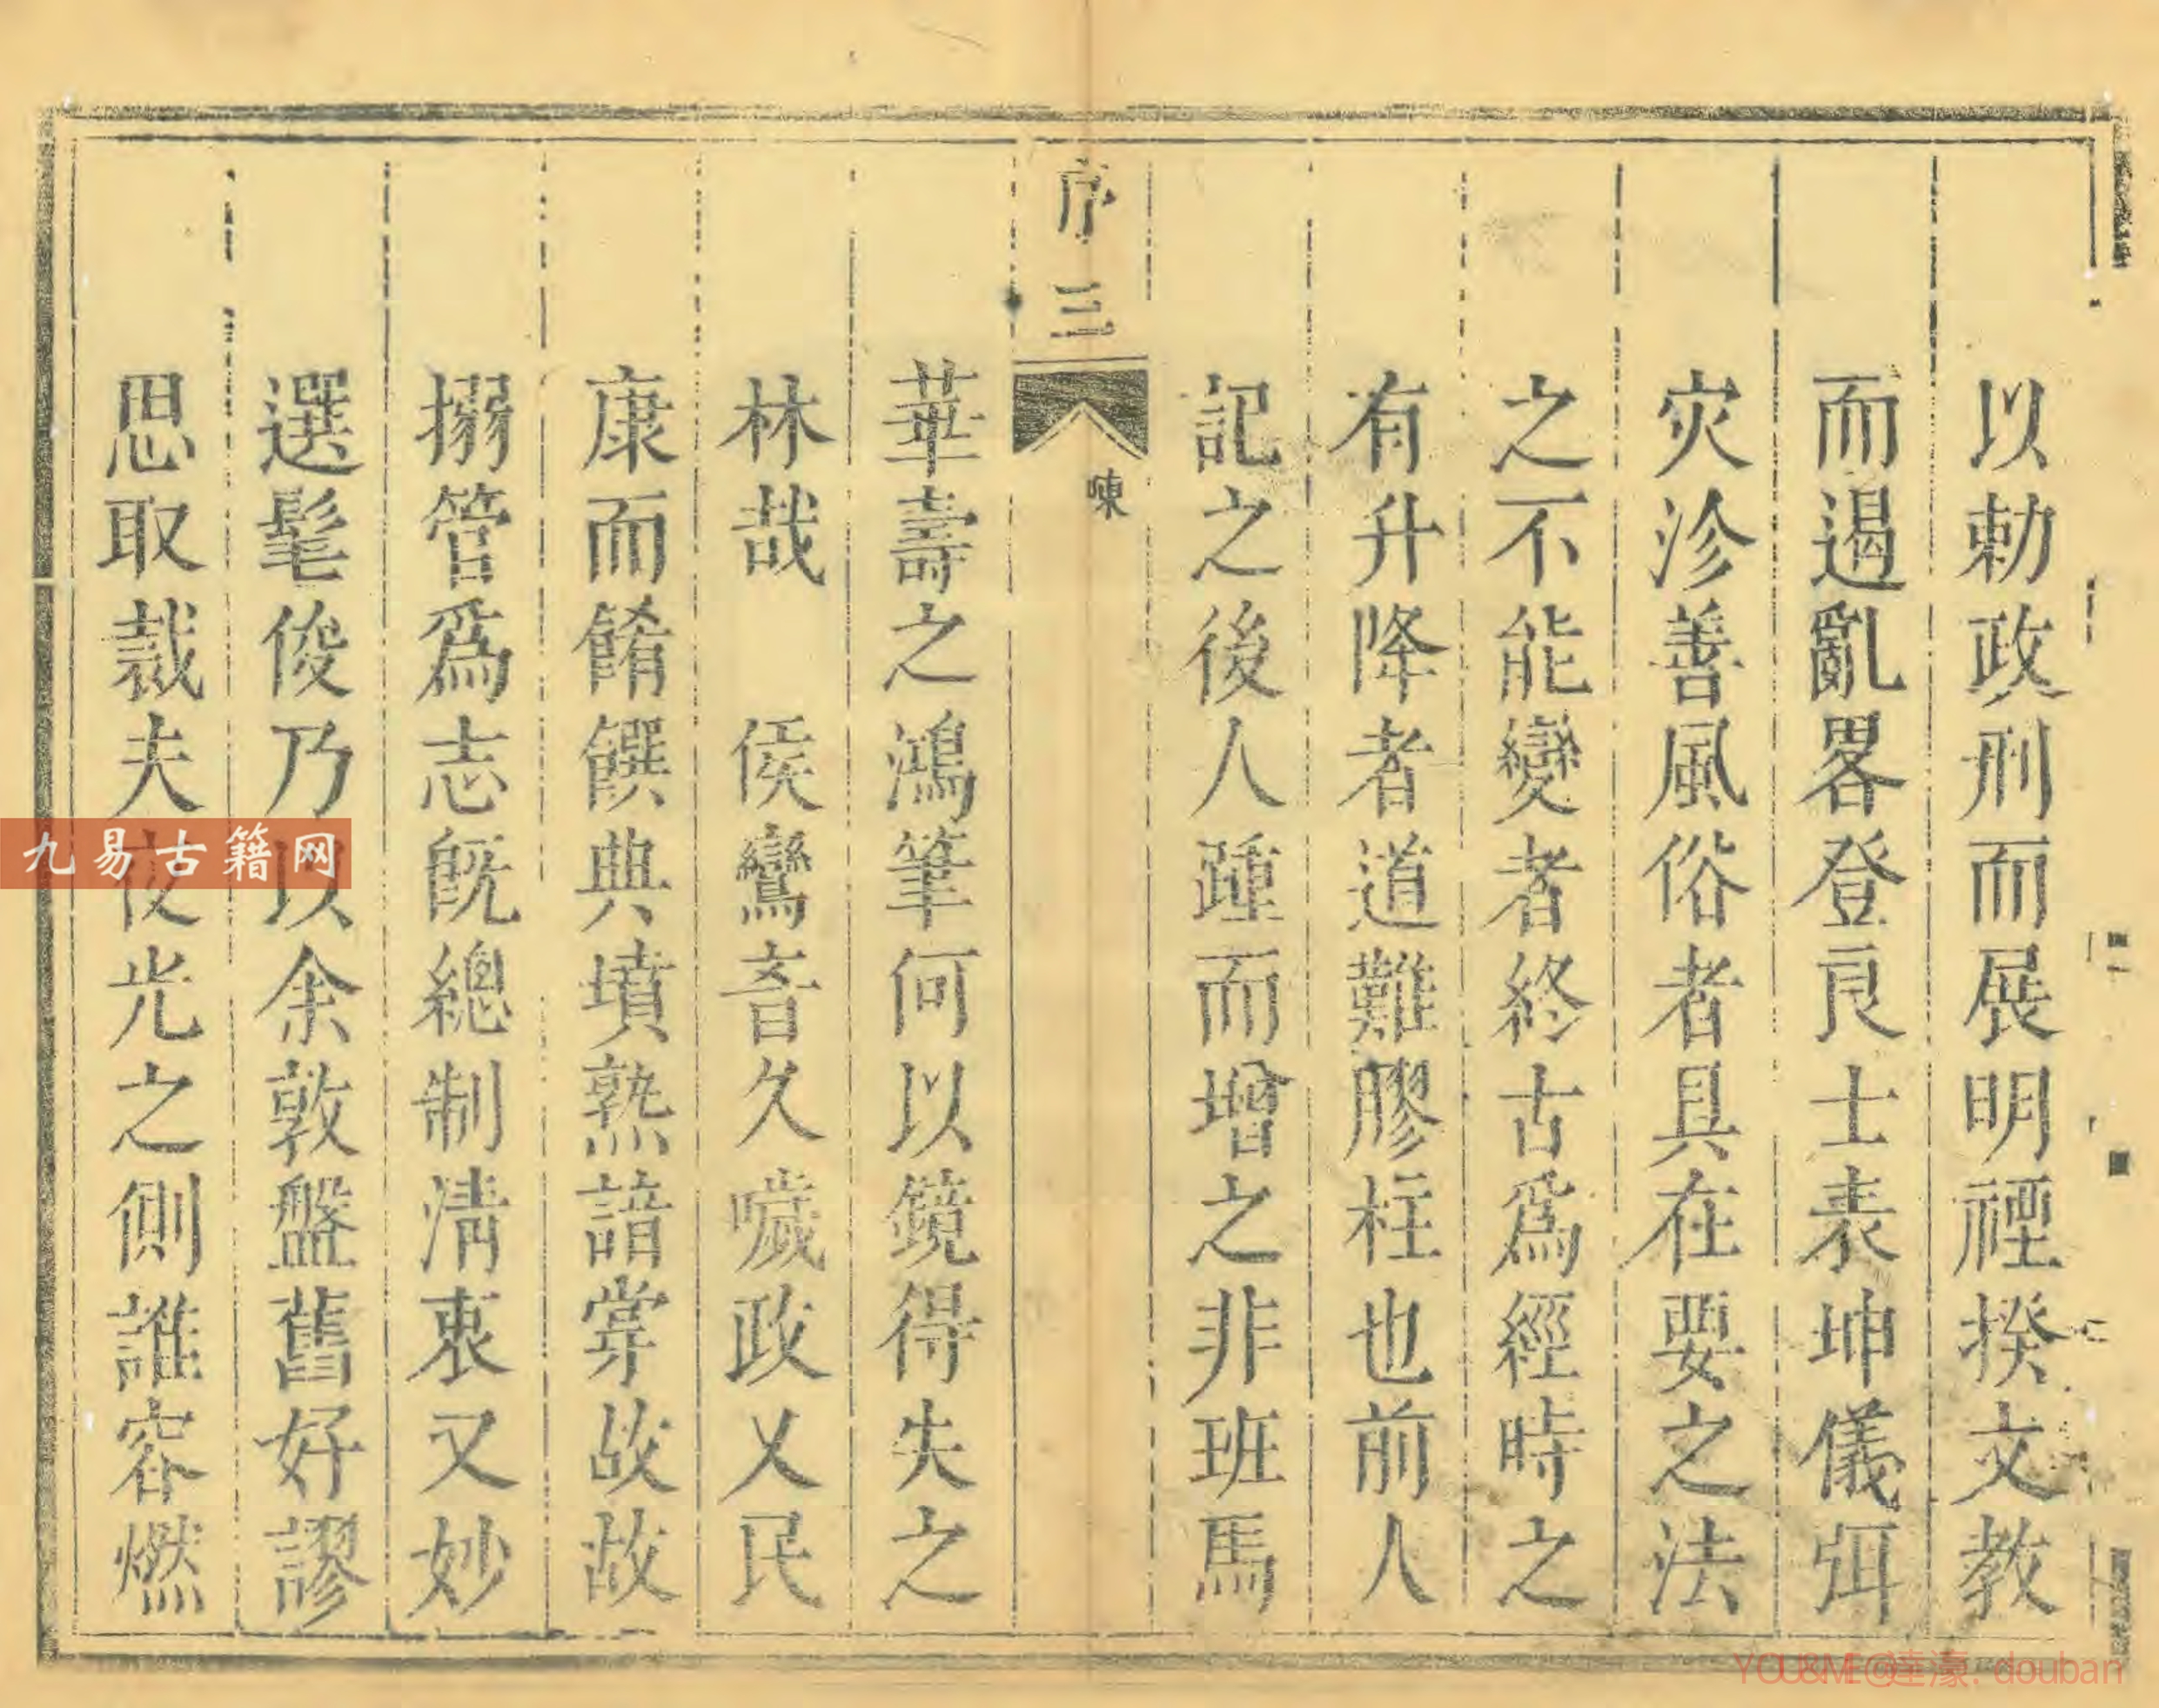 以勅政刑而展明禋揆文教
而遏亂畧登良士表坤儀弭
灾沴善風俗者具在要之法
之不能變者終古爲經時之
有升降者道難膠柱也前人
記之後人踵而增之非班馬
序 三
㖦
華壽之鴻筆何以鏡得失之
林哉 侯鸞音久噦政乂民
康而餚饌典墳熟諳掌故故
搦管爲志旣總制清衷又妙
選髦俊乃以余敦盤舊好謬
思取裁夫夜光之側誰容燃
九易古籍网
YOU&ME@達濠. douban